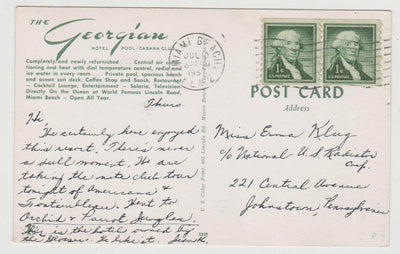 THE
Georgian
HOTEL POOL-CABANA CLUB
Completely and newly refurnished . . . Central air condi-
tioning and heat with dial temperature control, radio and
ice water in every room . . . Private pool, spacious beach
and ocean sun deck. Coffee Shop and Beach, Restaurant
— Cocktail Lounge, Entertainment — Solaria, Television
Directly On the Ocean at World Famous Lincoln Road,
Miami Beach — Open All Year.
Thurs.
Hi,
We certainly have enjoyed
this resort. There's never
a dull moment. We are
taking the nite club tour
tonight of Americana &
Fontainbleau. Went to
Orchid & Parrot Jungles.
This is the hotel owned by
the
We like it.
MIAMI BEACH
JUL
195
FLA.
U.S. POSTAGE
1¢
U.S. POSTAGE
1¢
POST CARD
Address
Miss Erma Klug
c/o National U.S. Radiator
Corp.
221 Central Avenue
Johnstown, Pennsylvania